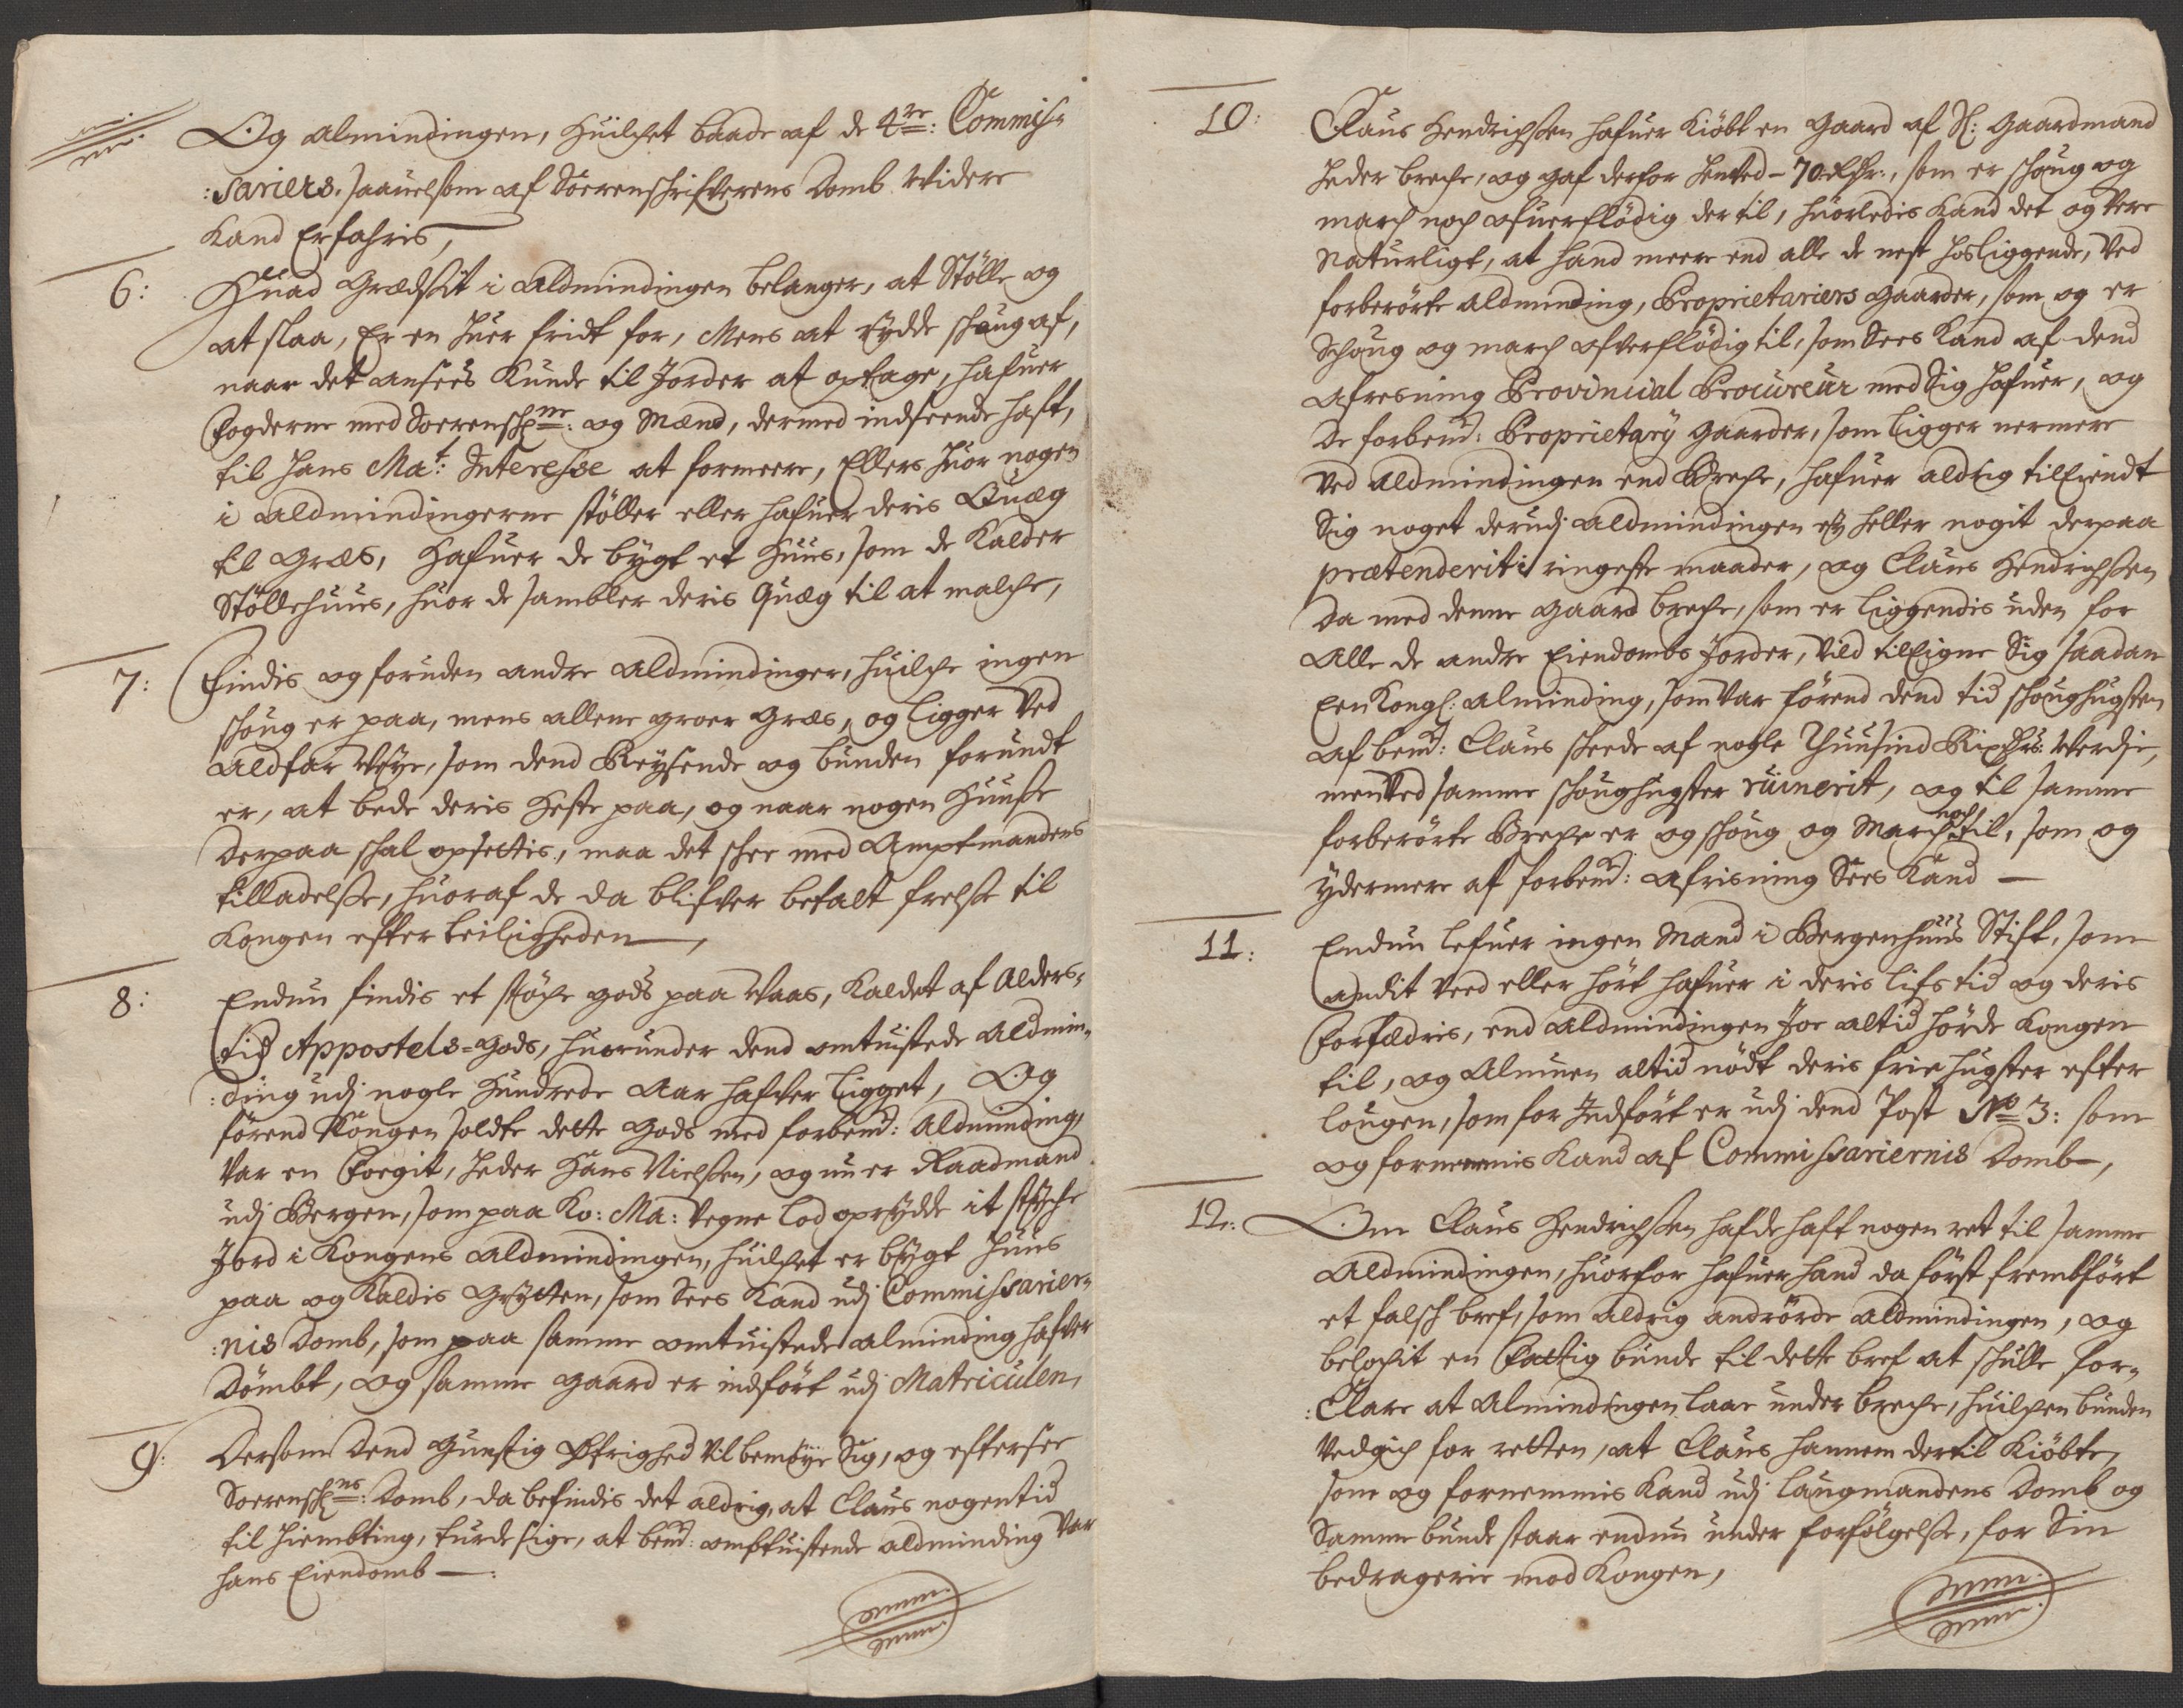 Og Almindingen, Huilchet baade af de 4re: Commis-
:sariers, saauelsom af Sorenschrifverens Domb widere
Kand Erfahris,
6: Huad Grædsit i Aldmindingen belanger, at Stölle og
at slaa, Er en huer fridt for, Mens at rÿdde schoug af,
naar det ansees Kunde til Jorder at optage, hafuer
Fogderne med Sorensch:ne: og Mænd, dermed indseende haft,
til Hans Mat: Interesse at formeere, Ellers huor nogen
i Aldmindingerne stöller eller hafuer deris Quæg
til Græs, Hafuer de bÿgt et Huus, som de Kalder
Stöllehuus, huor de sambler deris Quæg til at malche,
7: Findis og foruden andre Aldmindinger, huilche ingen
schoug er paa, mens allene groer Græs, og ligger Ved
Aldfar Veÿe, som dend Reÿsende og bunden forundt
er, at bede deris Heste paa, og naar nogen Huuse
derpaa schal opsettis, maa det schee med Amptmandens
tilladelse, huoraf de da blifver betalt frelse til
Kongen efter beiligheden,
8: Endnu findis et stöche gods paa Waas, Kaldet af Alders-
tid Appostels-Gods, huorunder dend omtuistede Aldmin-
:ding udj nogle Hundrede Aar hafver ligget, Og
förend Kongen soldte dette Gods med forbemd: Aldminding,
Var en Foegit, heder Hans Nielsen, og nu er Raadmand
udj Bergen, som paa Ko: Ma: Vegne lod oprÿdde it stÿche
Jord i Kongens Aldmindingen, huilchet er bÿgt Huus
paa og Kaldis Grÿtten, som Sees Kand udj Commissarier-
:nis Domb, som paa samme omtuistede alminding hafver
Dömbt, og samme gaard er indfört udj Matriculen,
9: Dersom dend Gunstig Øfrighed vil bemöÿe Sig, og eftersee
Sorensch:ns: Domb, da befindis det aldrig, at Claus nogen tid
til Hiembting, turde sige, at bemd: ombtuistende aldminding Var
hans Eiendomb —:
10: Claus Hendrichsen hafuer Kiöbt en Gaard af Sl: Gaardmand
heder breche, og gaf derfor henved - 70 Rdr:, som er schoug og
march noch ofuerflödig der til, huorledis Kand det og Vere
Naturligt, at hand meere end alle de nest hosliggende, Ved
forberörte Aldminding, Proprietariers Gaarder, som og er
Schoug og march ofverflödig til, som Sees Kand af dend
Afresning Provincial Procureur med Sig hafuer, og
de forbemd: Proprietarÿ Gaarder, som ligger nermere
Ved Aldmindingen end Breche, hafuer aldrig tilEiendt
Sig noget derudj Aldmindingen eÿ heller nogit derpaa
prætenderit i ringeste maader, og Claus Hendrichsen
da med denne Gaard breche, som er liggendis uden for
Alle de andre Eiendombs Jorder, Vild tilEigne Sig saadan
Een Kongl: Alminding, som Var förend dend tid schoughugsten
af bemd: Claus scheede af nogle Thuusind Rixdrs: Verdie,
men Ved samme schoughugster ruinerit, og til samme
forberörte Breche er og schoug og March noch til, som og
ÿdermere af forbemd: Afrisning Sees Kand —
11: Endnu lefuer ingen Mand i Bergenhuus Stift, som
andit Veed eller hört hafuer i deris lifs tid og deris
Forfædris, end Aldmindingen Joe altid hörde Kongen
til, og Almuen altid nödt deris frie hugster efter
lougen, som for Indfört er udj dend Post No 3: som
og fornemmis Kand af Commissariernis Domb,
12: Om Claus Hendrichsen hafde haft nogen ret til samme
Aldmindingen, huorfor hafuer hand da först frembfört
et falsch bref, som aldrig andrörde Aldmindingen, og
belochit en Fattig bunde til dette bref at schulle for-
:Clare at Almindingen laae under breche, huilchen bunden
Vedgich for retten, at Claus hannem dertil Kiöbte,
som og fornemmis Kand udj laugmandens Domb og
Samme bunde staar endnu under forfölgelse, for Sin
bedragerie mod Kongen,